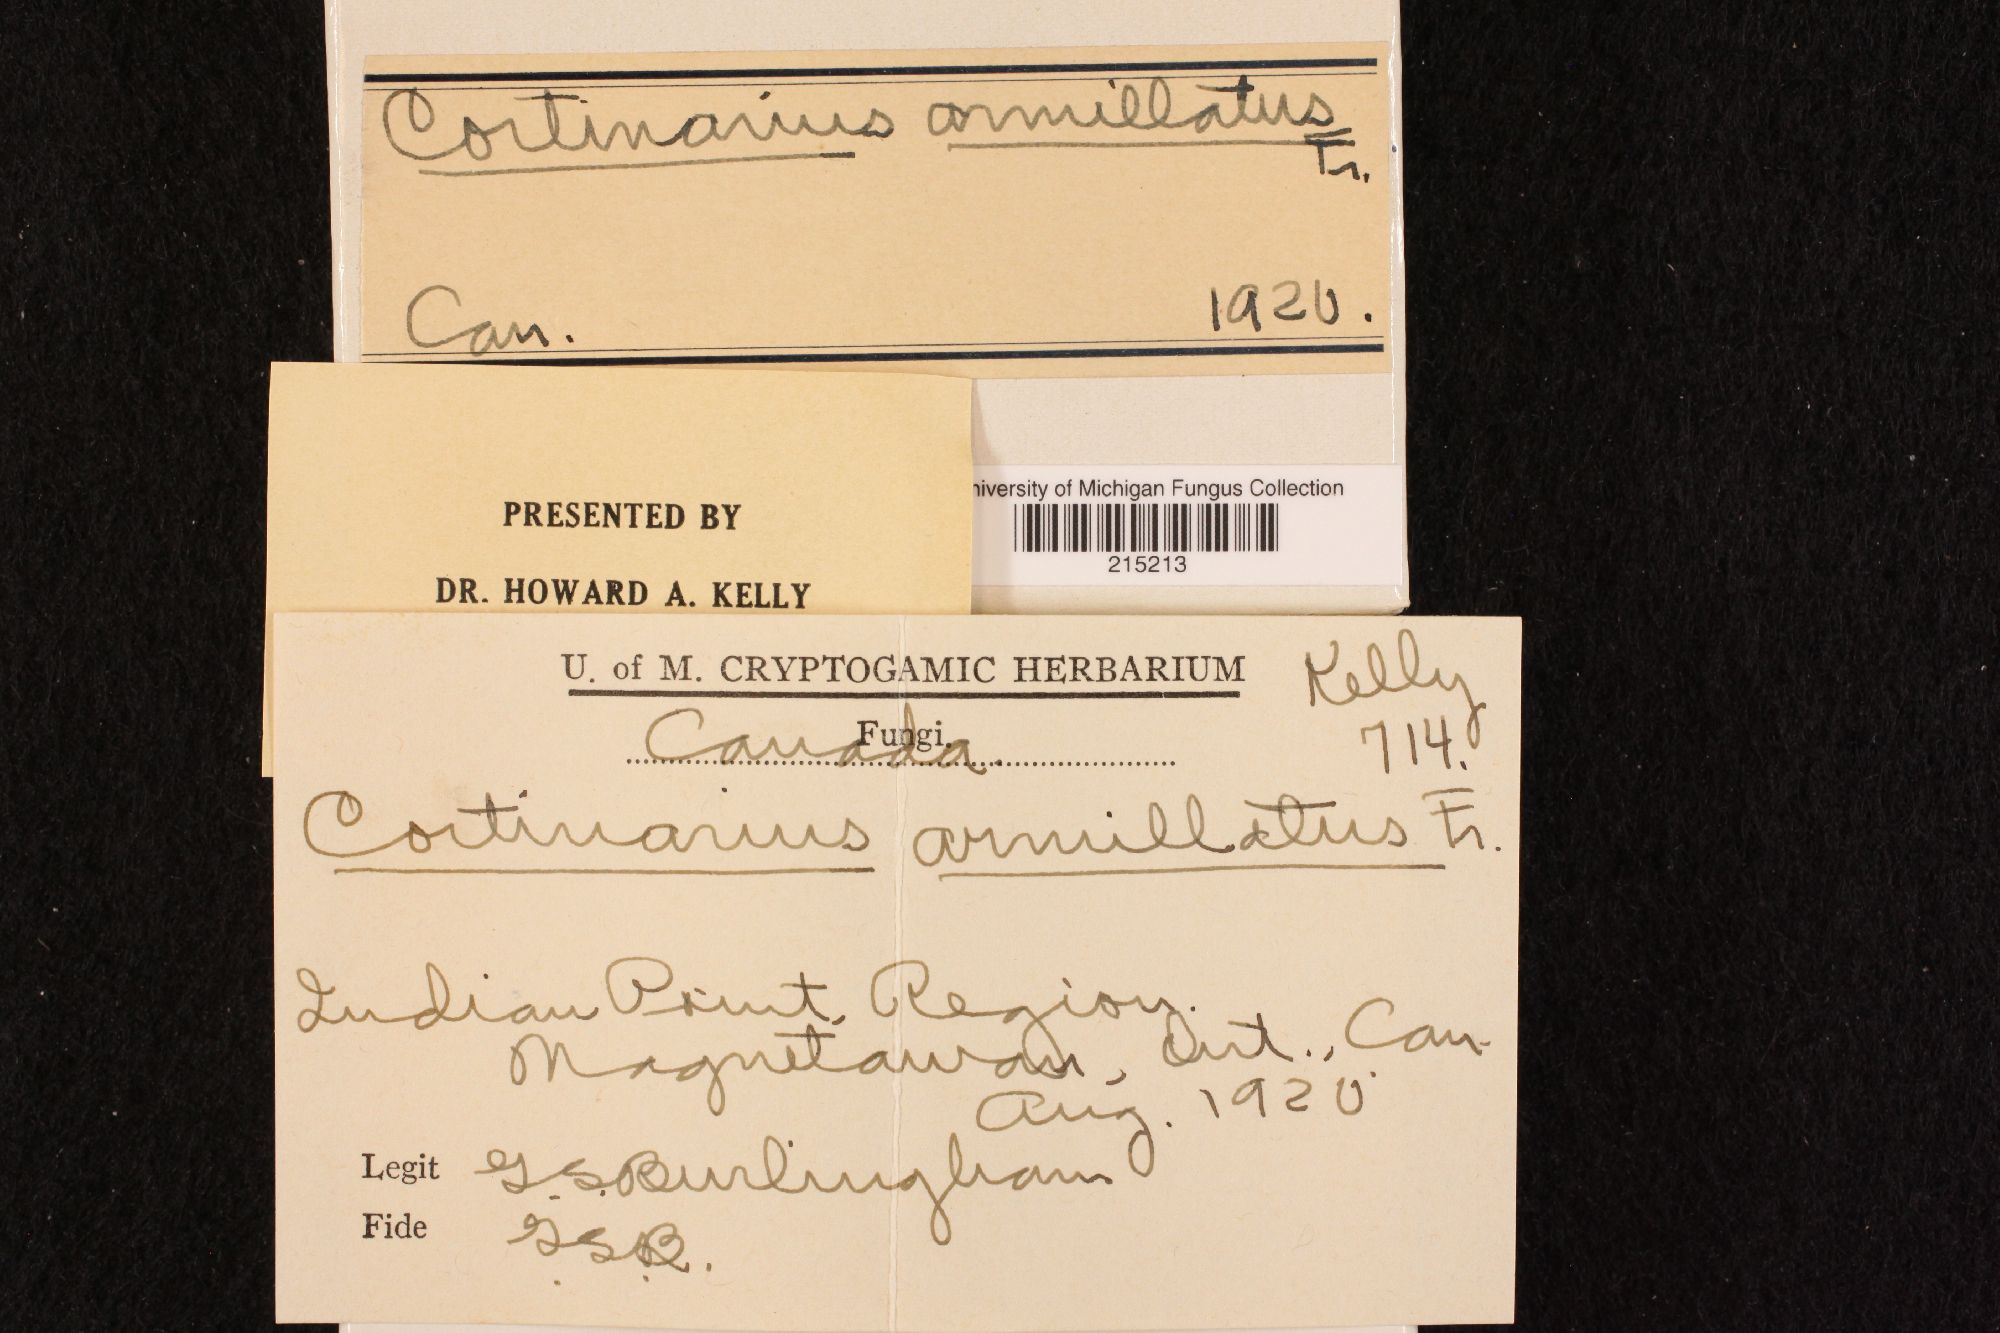 Cortinarius armillatus
Fr.
Can. 1920.
PRESENTED BY
DR. HOWARD A. KELLY
niversity of Michigan Fungus Collection
215213
U. of M. CRYPTOGAMIC HERBARIUM
Kelly
714.
Fungi.
Canada.
Cortinarius armillatus Fr.
Indian Point, Region.
Magnetawan, Ont., Can.
Aug. 1920
Legit G.S.Burlingham
Fide G.S.B.